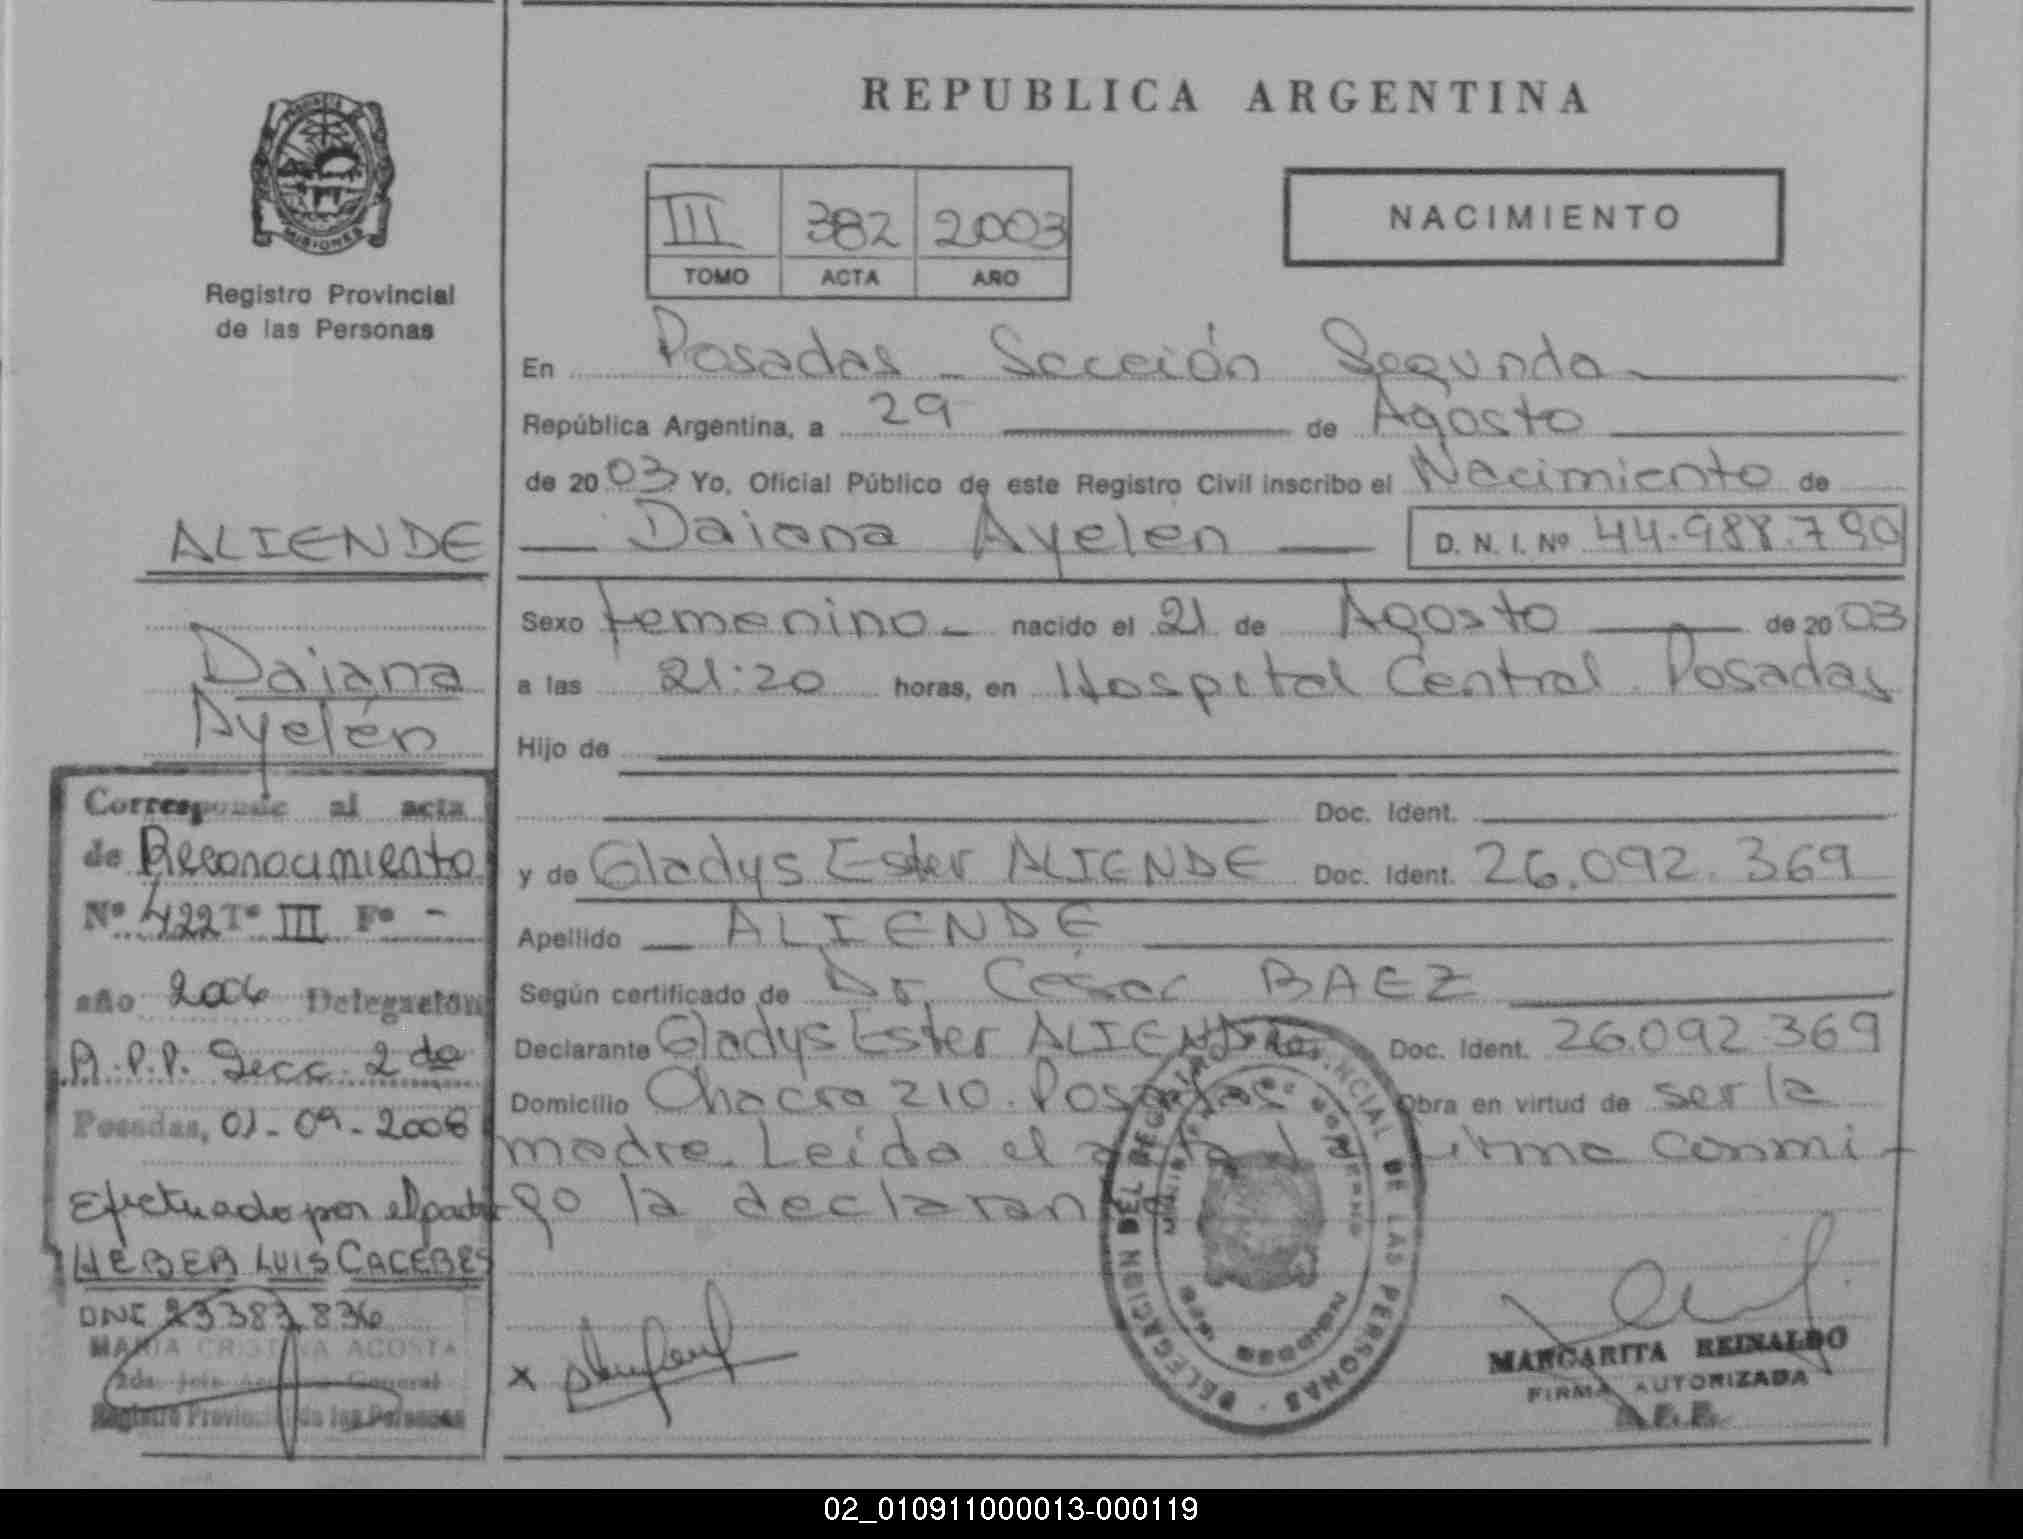 MISIONES
Registro Provincial
de las Personas
ALIENDE
Daiana
Ayelén
Corresponde al acta
de Reconocimiento
Nº 422 Tº III Fº -
año 2006 Delegación
R.P.P. Secc. 2da
Posadas, 01-09-2006
Efectuado por el padre
HEBER LUIS CACERES
DNI 23383836
MARIA CRISTINA ACOSTA
Registro Provincial de las Personas
REPUBLICA ARGENTINA
III 382 2003
TOMO ACTA AÑO
NACIMIENTO
En Posadas - Sección Segunda
República Argentina, a 29 de Agosto
de 2003 Yo, Oficial Público de este Registro Civil inscribo el Nacimiento de
Daiana Ayelen D. N. I. Nº 44.988.790
Sexo femenino - nacido el 21 de Agosto de 2003
a las 21:20 horas, en Hospital Central. Posadas
Hijo de
Doc. Ident.
y de Gladys Ester ALIENDE Doc. Ident. 26.092.369
Apellido ALIENDE
Según certificado de Dr. César BAEZ
Declarante Gladys Ester ALIENDE Doc. Ident. 26.092.369
Domicilio Chacra 210. Posadas Obra en virtud de ser la
madre. Leída el acta la firma conmi-
go la declarante
DELEGACION DEL REGISTRO PROVINCIAL DE LAS PERSONAS
x
MARGARITA REINALDO
FIRMA AUTORIZADA
R.P.P.
02_010911000013-000119